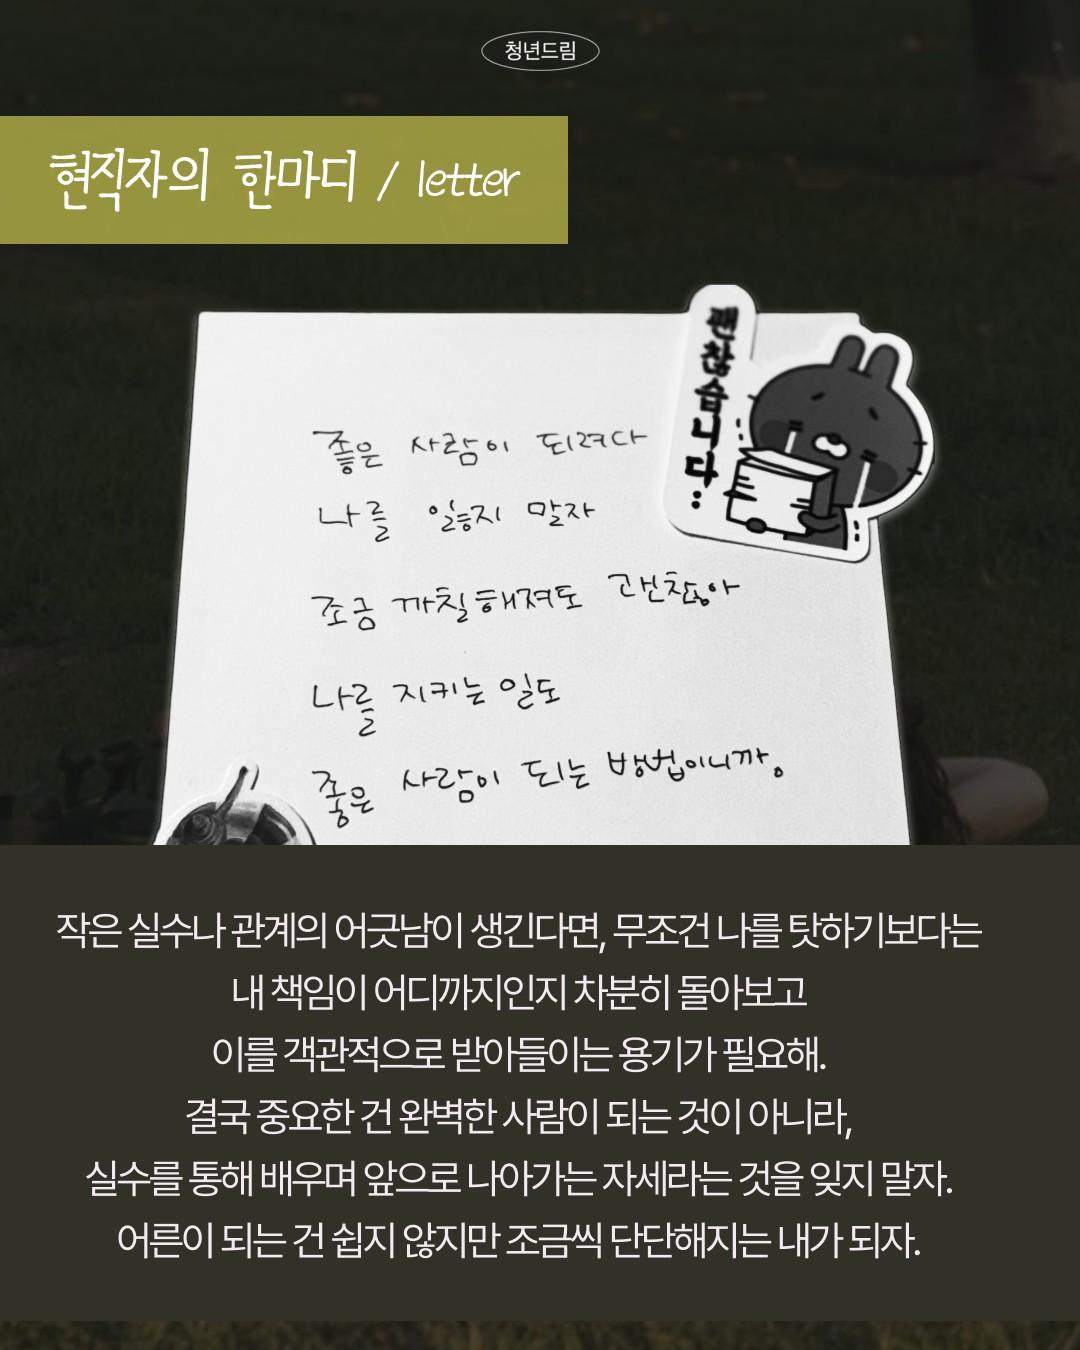 청년드림
현직자의 한마디 / letter
괜찮습니다..
좋은 사람이 되려다
나를 잃지 말자
조금 까칠해져도 괜찮아
나를 지키는 일도
좋은 사람이 되는 방법이니까。
작은 실수나 관계의 어긋남이 생긴다면, 무조건 나를 탓하기보다는
내 책임이 어디까지인지 차분히 돌아보고
이를 객관적으로 받아들이는 용기가 필요해.
결국 중요한 건 완벽한 사람이 되는 것이 아니라,
실수를 통해 배우며 앞으로 나아가는 자세라는 것을 잊지 말자.
어른이 되는 건 쉽지 않지만 조금씩 단단해지는 내가 되자.